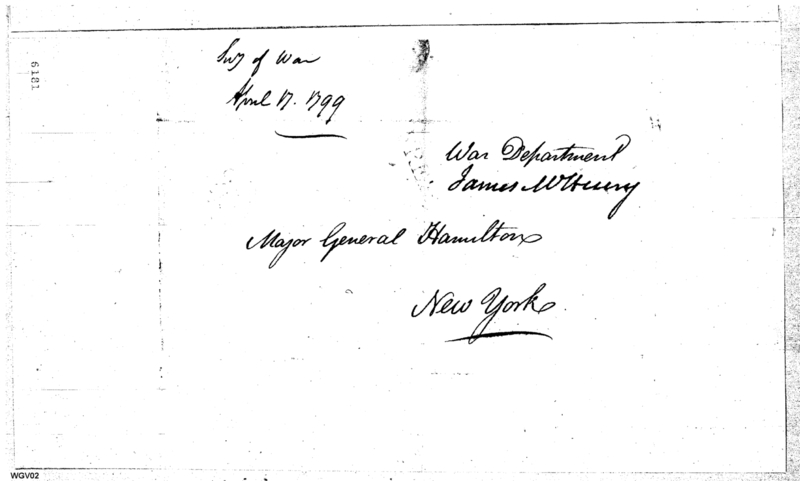 Secy of War
April 17. 1799
6181
War Department
James McHenry
Major General Hamilton
New York
WGV02